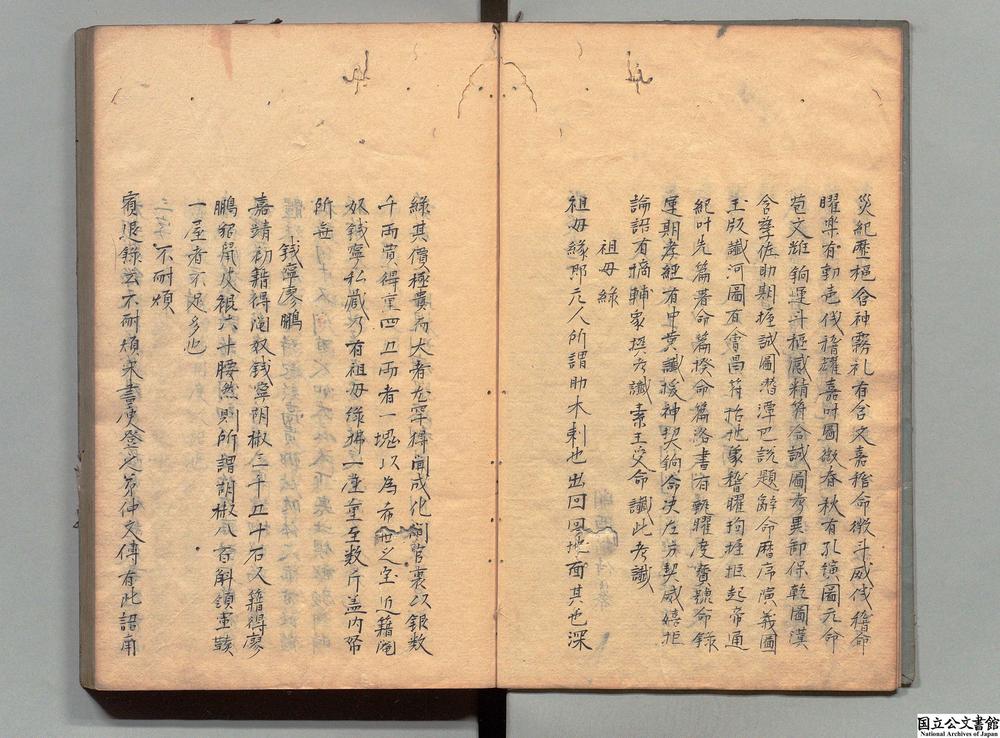 災紀歴樞含神霧礼有含文嘉稽命徴斗威伐稽命
曜樂有動聲伐稽耀嘉叶圖徴春秋有孔演圖元命
苞文雄鉤運斗樞感精符合誠圖考異郵保乾圖漢
含孳佐助期握誠圖潛潭巴説題辭命暦序演義圖
玉版讖河圖有會昌符括地象稽曜拘握拒起帝通
紀叶光篇著命篇揆命篇洛書有甄曜度賓號命録
運期孝經有中黄讖援神契鉤命决左方契威嬉拒
論語有摘輔象撰考讖素王受命讖此考讖
祖母緑
祖母緑即元人所謂助木剌也出回回地面其色深
緑其價極貴而大者尤罕得聞成化間官裏以銀數
千兩買得重四五兩者一塊以為布世之宝近籍閹
奴錢寧私藏乃有祖母緑狒一座重至数斤盖内帑
所無
錢寧廖鵬
嘉靖初籍得閹奴錢寧胡椒三千五十石又籍得廖
鵬貂鼠皮襖六十腰然則所謂胡椒八百斛領軍鞋
一屋者不足多也
不耐煩
賓退録云不耐煩宋書庾登之弟仲文傳有此語
国立公文書館
National Archives of Japan